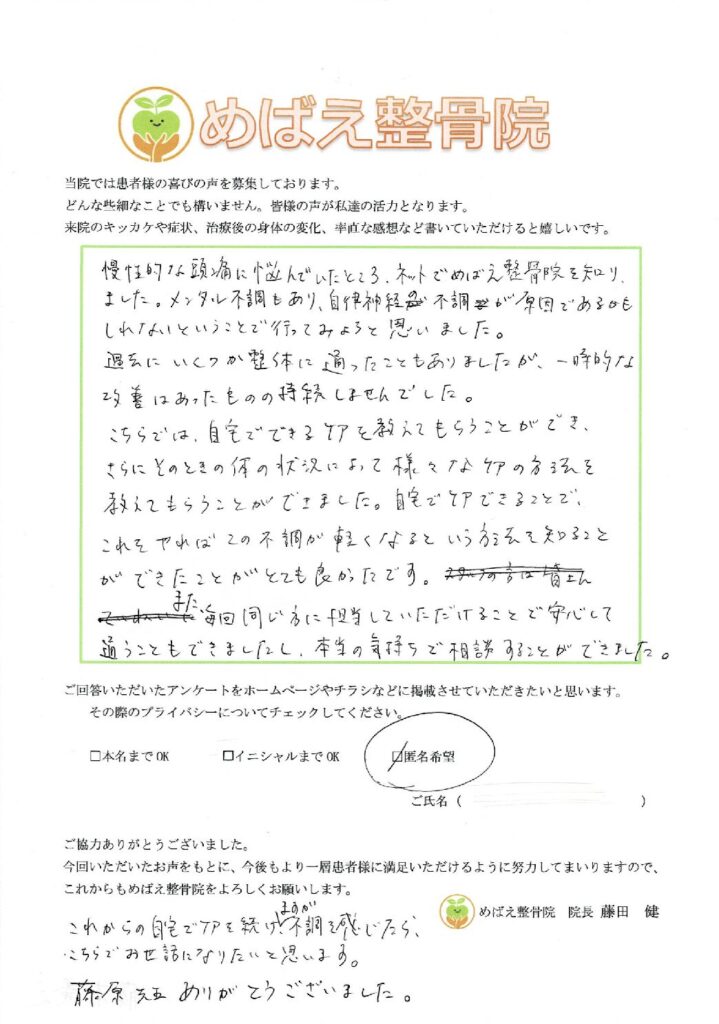 めばえ整骨院
当院では患者様の喜びの声を募集しております。
どんな些細なことでも構いません。皆様の声が私達の活力となります。
来院のキッカケや症状、治療後の身体の変化、率直な感想など書いていただけると嬉しいです。
慢性的な頭痛に悩んでいたところ、ネットでめばえ整骨院を知り
ました。メンタル不調もあり、自律神経の不調が原因であるかも
しれないということで行ってみようと思いました。
過去にいくつか整体に通ったこともありましたが、一時的な
改善はあったものの持続しませんでした。
こちらでは、自宅でできるケアを教えてもらうことができ、
さらにそのときの体の状況によって様々なケアの方法を
教えてもらうことができました。自宅でケアできることで、
これをやればこの不調が軽くなるという方法を知ること
ができたことがとても良かったです。
また毎回同じ方に担当していただけることで安心して
通うこともできましたし、本当の気持ちで相談することができました。
ご回答いただいたアンケートをホームページやチラシなどに掲載させていただきたいと思います。
その際のプライバシーについてチェックしてください。
□本名までOK □イニシャルまでOK □匿名希望
ご氏名（ ）
ご協力ありがとうございました。
今回いただいたお声をもとに、今後もより一層患者様に満足いただけるように努力してまいりますので、
これからもめばえ整骨院をよろしくお願いします。
めばえ整骨院 院長 藤田 健
これからの自宅でケアを続けますが不調を感じたら、
こちらでお世話になりたいと思います。
藤原先生ありがとうございました。